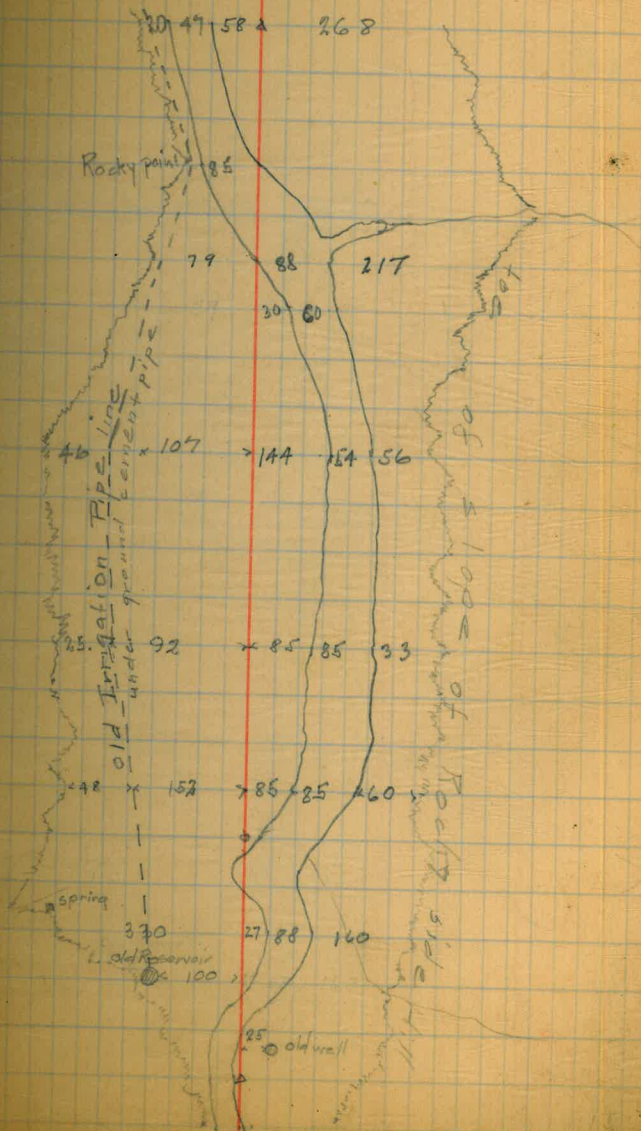 20 47 58 268
Rocky point 85
79 88 217
30 60
46 107 144 54 56
25 92 85 85 33
48 152 85 85 60
Spring
330 27 88 160
old Reservoir
100
25
old well
old Irrigation Pipe line
under ground cement pipe
toe of slope of Rocky side Hill